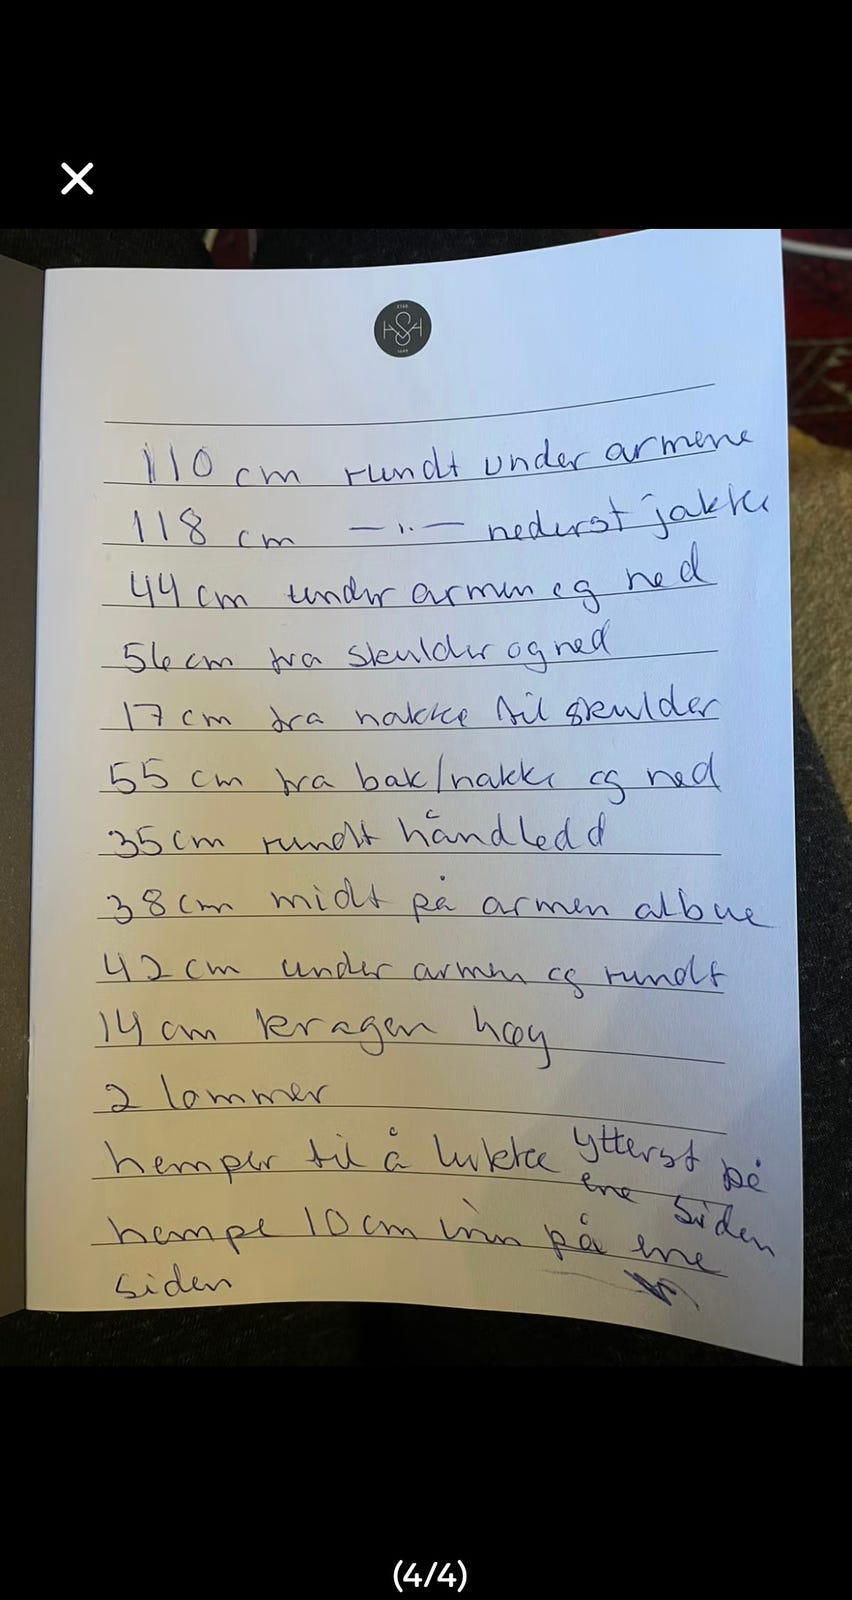 110 cm rundt under armene
118 cm —"— nederst jakke
44 cm under armen og ned
56 cm fra skulder og ned
17 cm fra nakke til skulder
55 cm fra bak/nakke og ned
35 cm rundt håndledd
38 cm midt på armen albue
42 cm under armen og rundt
14 cm kragen høy
2 lommer
hemper til å lukke ytterst på
ene siden
hempe 10 cm inn på ene
siden
(4/4)